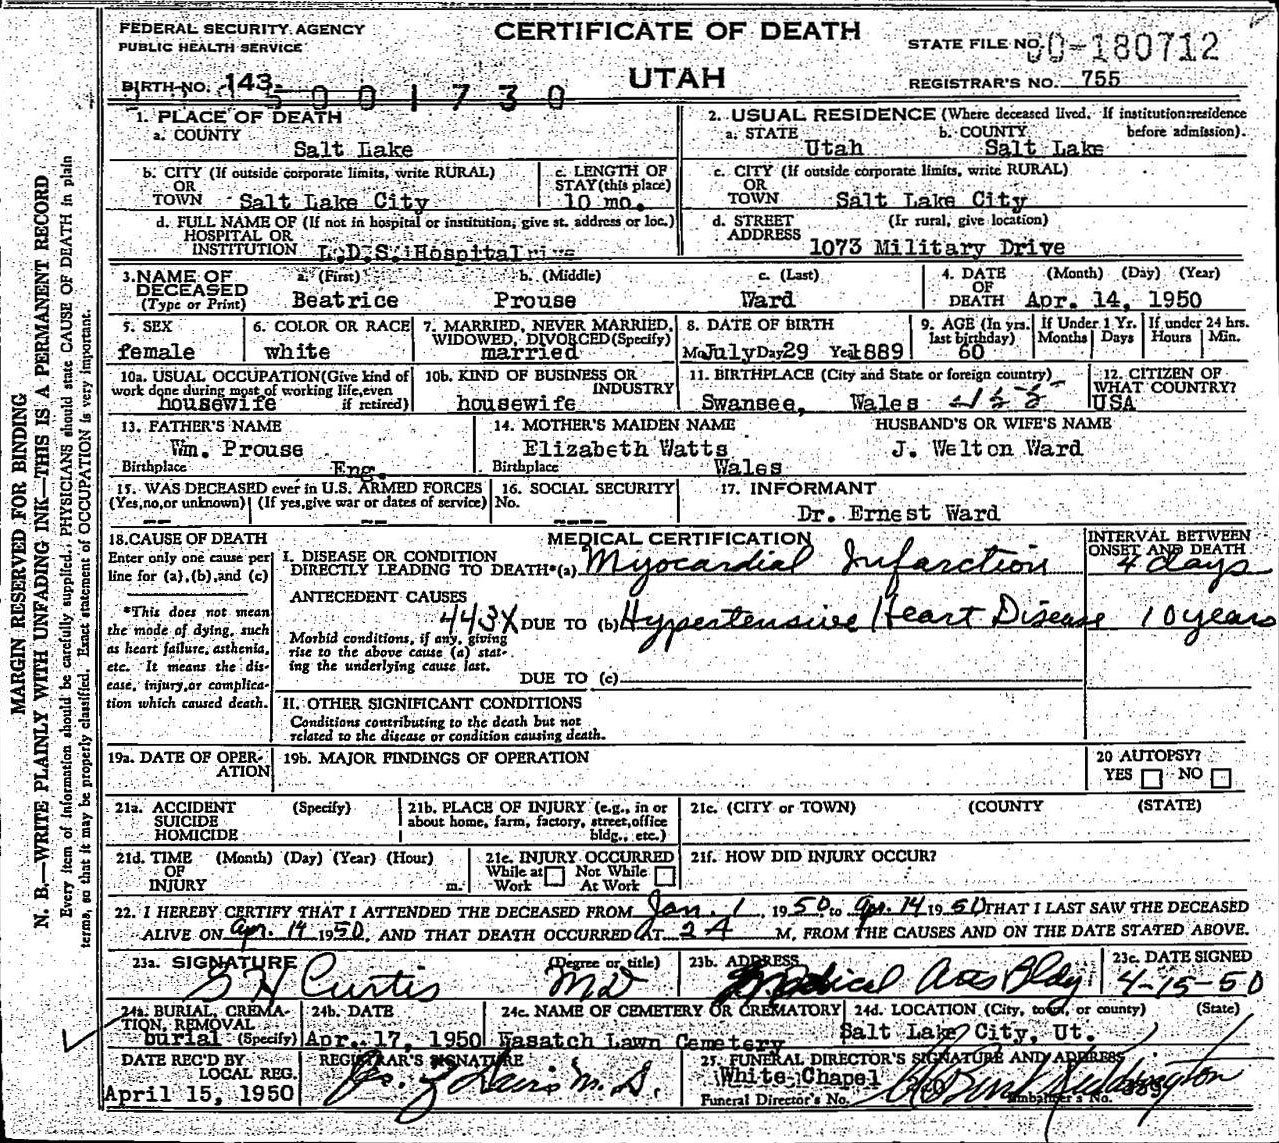 FEDERAL SECURITY AGENCY
PUBLIC HEALTH SERVICE
CERTIFICATE OF DEATH
UTAH
STATE FILE NO. 50-180712
REGISTRAR'S NO. 755
BIRTH NO. 143
5001730
1. PLACE OF DEATH
a. COUNTY
Salt Lake
b. CITY (If outside corporate limits, write RURAL)
OR
TOWN Salt Lake City
c. LENGTH OF
STAY (this place)
10 mo.
d. FULL NAME OF (If not in hospital or institution, give st. address or loc.)
HOSPITAL OR
INSTITUTION L.D.S. Hospital
2. USUAL RESIDENCE (Where deceased lived. If institution: residence
before admission).
a. STATE b. COUNTY
Utah Salt Lake
c. CITY (If outside corporate limits, write RURAL)
OR
TOWN Salt Lake City
d. STREET (If rural, give location)
ADDRESS
1073 Military Drive
3. NAME OF
DECEASED
(Type or Print)
a. (First) b. (Middle) c. (Last)
Beatrice Prouse Ward
4. DATE (Month) (Day) (Year)
OF
DEATH Apr. 14, 1950
5. SEX
female
6. COLOR OR RACE
white
7. MARRIED, NEVER MARRIED,
WIDOWED, DIVORCED (Specify)
married
8. DATE OF BIRTH
Mo July Day 29 Year 1889
9. AGE (In yrs.
last birthday)
60
If Under 1 Yr.
Months Days
If under 24 hrs.
Hours Min.
10a. USUAL OCCUPATION (Give kind of
work done during most of working life, even
if retired)
housewife
10b. KIND OF BUSINESS OR
INDUSTRY
housewife
11. BIRTHPLACE (City and State or foreign country)
Swansee, Wales
12. CITIZEN OF
WHAT COUNTRY?
USA
13. FATHER'S NAME
Wm. Prouse
Birthplace Eng.
14. MOTHER'S MAIDEN NAME
Elizabeth Watts
Birthplace Wales
HUSBAND'S OR WIFE'S NAME
J. Welton Ward
15. WAS DECEASED ever in U.S. ARMED FORCES
(Yes, no, or unknown) (If yes, give war or dates of service)
-- --
16. SOCIAL SECURITY
No.
----
17. INFORMANT
Dr. Ernest Ward
18. CAUSE OF DEATH
Enter only one cause per
line for (a), (b), and (c)
*This does not mean
the mode of dying, such
as heart failure, asthenia,
etc. It means the dis-
ease, injury, or complica-
tion which caused death.
MEDICAL CERTIFICATION
I. DISEASE OR CONDITION
DIRECTLY LEADING TO DEATH* (a) Myocardial Infarction
INTERVAL BETWEEN
ONSET AND DEATH
4 days
ANTECEDENT CAUSES
443X DUE TO (b) Hypertensive Heart Disease 10 years
Morbid conditions, if any, giving
rise to the above cause (a) stat-
ing the underlying cause last.
DUE TO (c)
II. OTHER SIGNIFICANT CONDITIONS
Conditions contributing to the death but not
related to the disease or condition causing death.
19a. DATE OF OPER-
ATION
19b. MAJOR FINDINGS OF OPERATION
20 AUTOPSY?
YES NO
21a. ACCIDENT (Specify)
SUICIDE
HOMICIDE
21b. PLACE OF INJURY (e.g., in or
about home, farm, factory, street, office
bldg., etc.)
21c. (CITY or TOWN) (COUNTY) (STATE)
21d. TIME (Month) (Day) (Year) (Hour)
OF
INJURY m.
21e. INJURY OCCURRED
While at Not While
Work At Work
21f. HOW DID INJURY OCCUR?
22. I HEREBY CERTIFY THAT I ATTENDED THE DECEASED FROM Jan. 1, 1950, to Apr. 14 1950 THAT I LAST SAW THE DECEASED
ALIVE ON Apr. 14 1950, AND THAT DEATH OCCURRED AT 2 A M, FROM THE CAUSES AND ON THE DATE STATED ABOVE.
23a. SIGNATURE (Degree or title)
S H Curtis MD
23b. ADDRESS
Medical Arts Bldg
23c. DATE SIGNED
4-15-50
24a. BURIAL, CREMA-
TION, REMOVAL
burial (Specify)
24b. DATE
Apr. 17, 1950
24c. NAME OF CEMETERY OR CREMATORY
Wasatch Lawn Cemetery
24d. LOCATION (City, town, or county) (State)
Salt Lake City, Ut.
DATE REC'D BY
LOCAL REG.
April 15, 1950
REGISTRAR'S SIGNATURE
M.D.
25. FUNERAL DIRECTOR'S SIGNATURE AND ADDRESS
White Chapel
Funeral Director's No. Embalmer's No.
MARGIN RESERVED FOR BINDING
N. B.—WRITE PLAINLY WITH UNFADING INK—THIS IS A PERMANENT RECORD
Every item of information should be carefully supplied. PHYSICIANS should state CAUSE OF DEATH in plain
terms, so that it may be properly classified. Exact statement of OCCUPATION is very important.